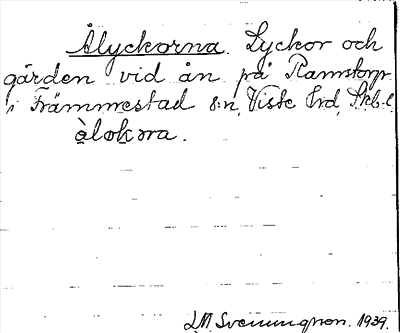 Ålyckorna. Lyckor och
gärden vid ån på Ramstorp
i Främmestad s:n, Viste hrd, Skb. l.
àlokɔra.
D.M. Svenningson. 1939.